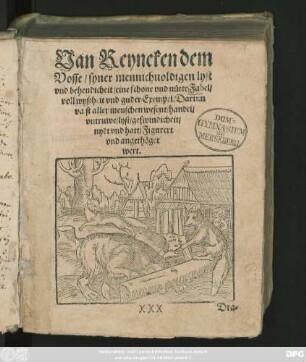 Van Reyncken dem
Vosse / syner mennichuoldigen lyst
vnd behendicheit / eine schone vnd nütte Fabel /
voll wyßheit vnd guder Exempel. Darinn
vast aller menschen wesent / handel /
vntruwe / lyst / geswindicheit /
nydt vnd hatt / Figurert
vnd angethöget
wert.
DOM-
GYMNASIUM
MERSEBURG
XXX
Dra-
DFG